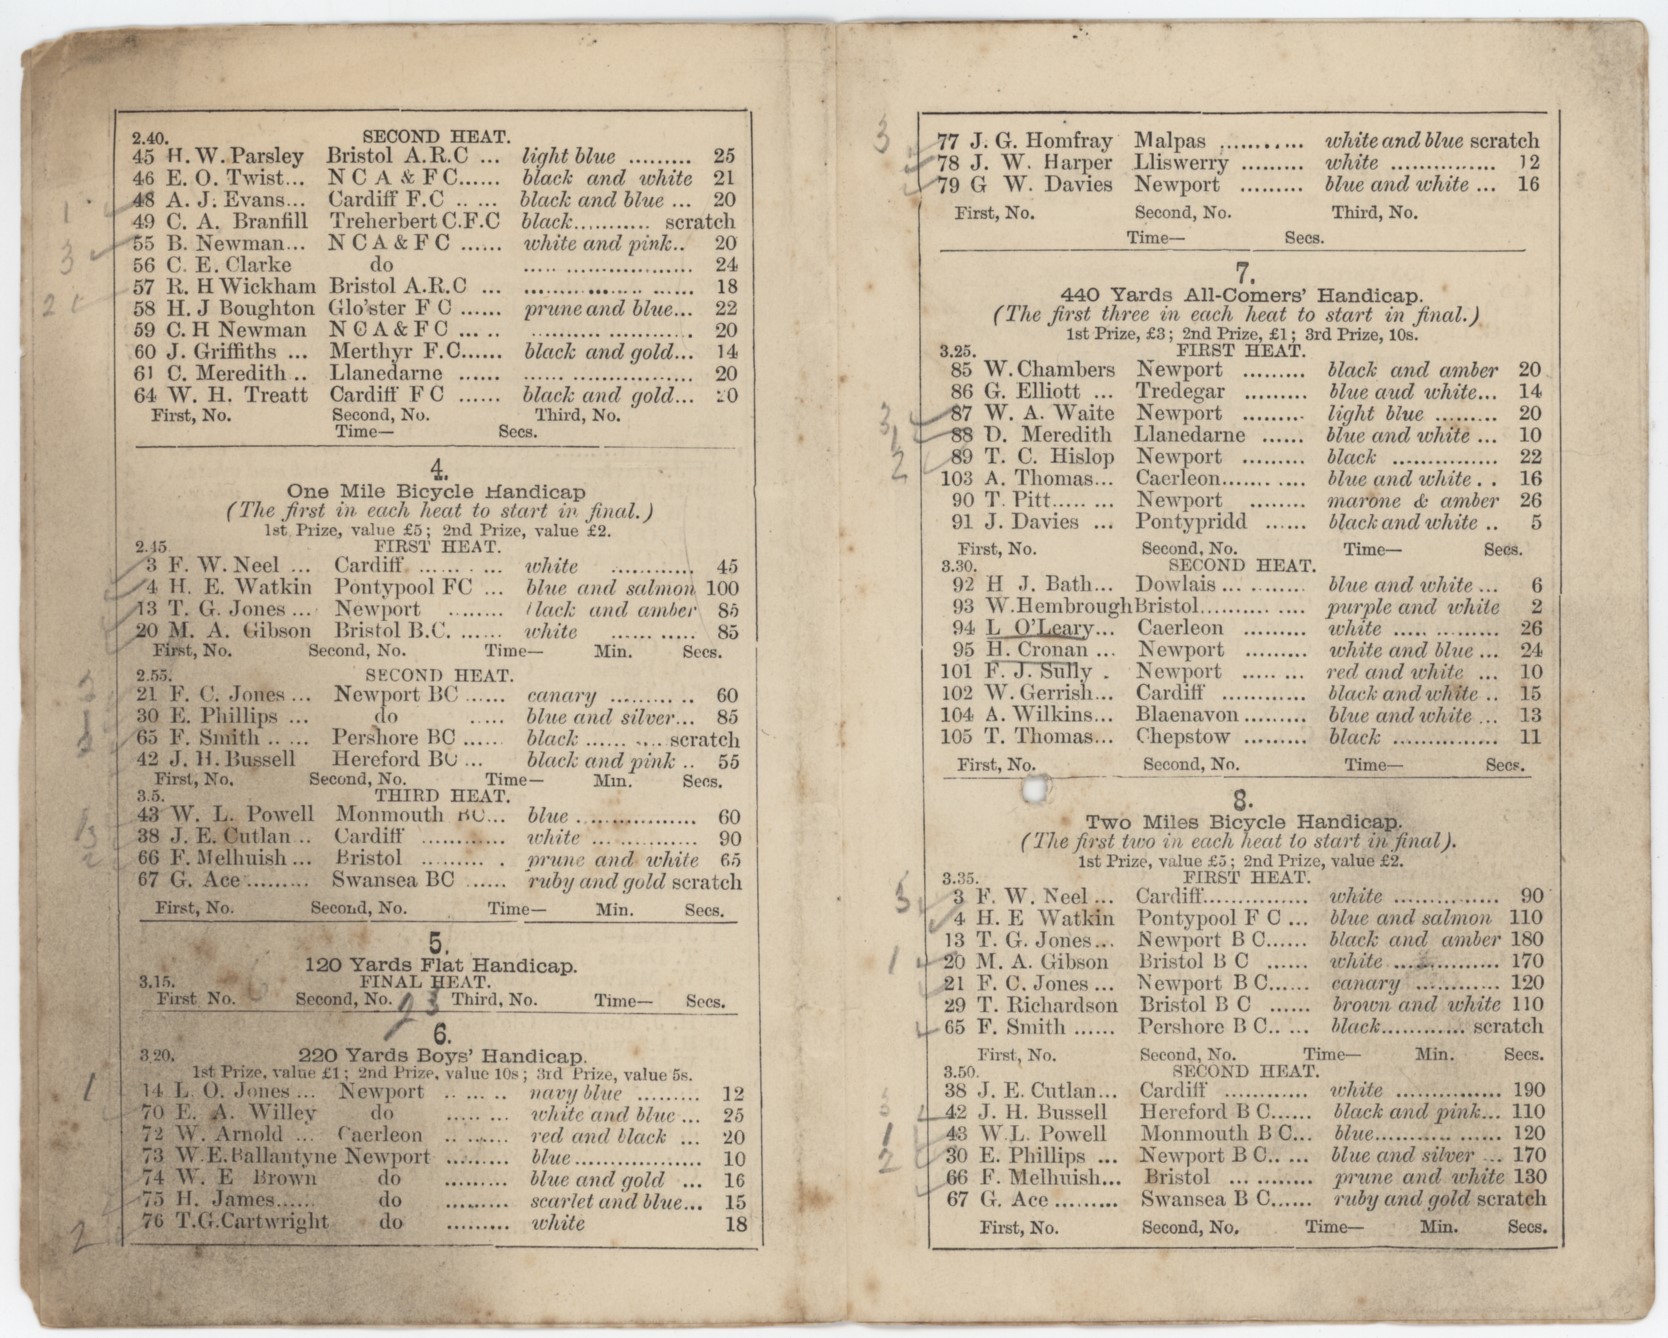 2.40. SECOND HEAT.
45 H. W. Parsley Bristol A.R.C ... light blue ......... 25
46 E. O. Twist... N C A & F C...... black and white 21
1 48 A. J. Evans... Cardiff F.C .. ... black and blue ... 20
49 C. A. Branfill Treherbert C.F.C black........... scratch
3 55 B. Newman... N C A & F C ...... white and pink.. 20
56 C. E. Clarke do ..... ..................... 24
2 57 R. H Wickham Bristol A.R.C ... ..................... ...... 18
58 H. J Boughton Glo'ster F C ...... prune and blue... 22
59 C. H Newman N C A & F C ... .. . ..................... 20
60 J. Griffiths ... Merthyr F.C...... black and gold... 14
61 C. Meredith .. Llanedarne ...... ...... .................. 20
64 W. H. Treatt Cardiff F C ...... black and gold... 20
First, No. Second, No. Third, No.
Time— Secs.
4.
One Mile Bicycle Handicap
(The first in each heat to start in final.)
1st Prize, value £5; 2nd Prize, value £2.
2.45 FIRST HEAT.
3 F. W. Neel ... Cardiff ...... . ... white ............ 45
4 H. E. Watkin Pontypool FC ... blue and salmon 100
13 T. G. Jones ... Newport ........ black and amber 85
20 M. A. Gibson Bristol B.C. ...... white ...... ..... 85
First, No. Second, No. Time— Min. Secs.
2.55. SECOND HEAT.
21 F. C. Jones ... Newport BC ...... canary ......... .. 60
30 E. Phillips ... do ..... blue and silver... 85
65 F. Smith .. ... Pershore BC ..... black ...... .... scratch
42 J. H. Bussell Hereford BC ... black and pink .. 55
First, No. Second, No. Time— Min. Secs.
3.5. THIRD HEAT.
43 W. L. Powell Monmouth BC... blue ................. 60
38 J. E. Cutlan .. Cardiff ............ white ............... 90
66 F. Melhuish ... Bristol ......... . prune and white 65
67 G. Ace ......... Swansea BC ...... ruby and gold scratch
First, No. Second, No. Time— Min. Secs.
5.
120 Yards Flat Handicap.
3.15. FINAL HEAT.
First No. Second, No. Third, No. Time— Secs.
6.
3.20. 220 Yards Boys' Handicap.
1st Prize, value £1; 2nd Prize, value 10s; 3rd Prize, value 5s.
1 14 L. O. Jones ... Newport .. ... .. navy blue ......... 12
70 E. A. Willey do ..... ... white and blue ... 25
72 W. Arnold ... Caerleon .. ...... red and black ... 20
73 W.E. Ballantyne Newport ......... blue.................. 10
74 W. E Brown do ......... blue and gold ... 16
75 H. James...... do ......... scarlet and blue... 15
2 76 T.G.Cartwright do ......... white 18
3 77 J. G. Homfray Malpas ............ white and blue scratch
78 J. W. Harper Lliswerry ......... white ............... 12
79 G W. Davies Newport ......... blue and white ... 16
First, No. Second, No. Third, No.
Time— Secs.
7.
440 Yards All-Comers' Handicap.
(The first three in each heat to start in final.)
1st Prize, £3; 2nd Prize, £1; 3rd Prize, 10s.
3.25. FIRST HEAT.
85 W. Chambers Newport ......... black and amber 20
86 G. Elliott ... Tredegar ......... blue aud white... 14
3 87 W. A. Waite Newport ......... light blue ......... 20
1 88 D. Meredith Llanedarne ...... blue and white ... 10
2 89 T. C. Hislop Newport ......... black ............... 22
103 A. Thomas... Caerleon.......... blue and white . . 16
90 T. Pitt..... ... Newport ........ marone & amber 26
91 J. Davies ... Pontypridd ...... black and white .. 5
First, No. Second, No. Time— Secs.
3.30. SECOND HEAT.
92 H J. Bath... Dowlais ... ........ blue and white ... 6
93 W.Hembrough Bristol.......... .... purple and white 2
94 L O'Leary... Caerleon ......... white ..... ......... 26
95 H. Cronan ... Newport ......... white and blue ... 24
101 F. J. Sully . Newport ..... ... red and white ... 10
102 W. Gerrish... Cardiff ............ black and white .. 15
104 A. Wilkins... Blaenavon ......... blue and white ... 13
105 T. Thomas... Chepstow ......... black ............... 11
First, No. Second, No. Time— Secs.
8.
Two Miles Bicycle Handicap.
(The first two in each heat to start in final).
1st Prize, value £5; 2nd Prize, value £2.
3.35. FIRST HEAT.
3 3 F. W. Neel ... Cardiff............... white ............... 90
4 H. E Watkin Pontypool F C ... blue and salmon 110
13 T. G. Jones... Newport B C...... black and amber 180
1 20 M. A. Gibson Bristol B C ...... white ............... 170
21 F. C. Jones ... Newport B C...... canary ............ 120
29 T. Richardson Bristol B C ...... brown and white 110
65 F. Smith ...... Pershore B C.. ... black............ scratch
First, No. Second, No. Time— Min. Secs.
3.50. SECOND HEAT.
38 J. E. Cutlan... Cardiff ............ white ............... 190
42 J. H. Bussell Hereford B C...... black and pink... 110
1 43 W.L. Powell Monmouth B C... blue.................. 120
2 30 E. Phillips ... Newport B C.. ... blue and silver ... 170
66 F. Melhuish... Bristol ... ........ prune and white 130
67 G. Ace ......... Swansea B C...... ruby and gold scratch
First, No. Second, No. Time— Min. Secs.